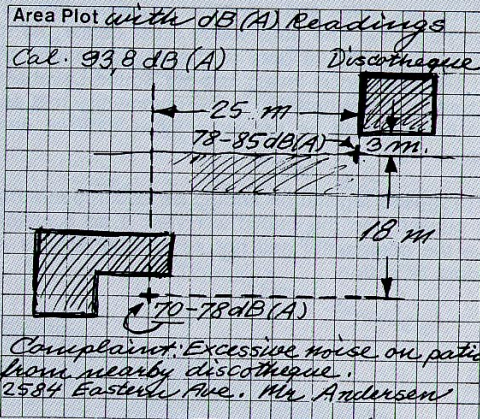 Area Plot with dB(A) Readings
Cal. 93,8 dB(A)
Discotheque
25 m
78-85dB(A)
3 m.
18 m
70-78dB(A)
Complaint: Excessive noise on patio
from nearby discotheque.
2584 Eastern Ave. Mr Andersen